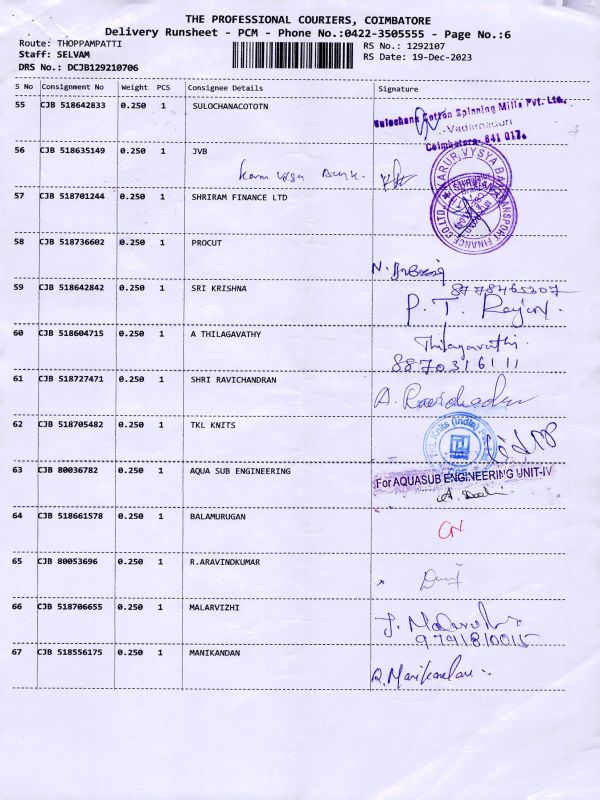 THE PROFESSIONAL COURIERS, COIMBATORE
Delivery Runsheet - PCM - Phone No.:0422-3505555 - Page No.:6
Route: THOPPAMPATTI
RS No.: 1292107
Staff: SELVAM
RS Date: 19-Dec-2023
DRS No.: DCJB129210706
S No Consignment No Weight PCS Consignee Details Signature
55 CJB 518642833 0.250 1 SULOCHANACOTOTN
Sulochana Cotton Spinning Mills Pvt. Ltd.,
Coimbatore- 641 017.
56 CJB 518635149 0.250 1 JVB
Karur Vysya Bank.
KARUR VYSYA BA
57 CJB 518701244 0.250 1 SHRIRAM FINANCE LTD
TRANSPORT FINANCE CO LTD
58 CJB 518736602 0.250 1 PROCUT
59 CJB 518642842 0.250 1 SRI KRISHNA
8778465307
P. T. Rajan.
60 CJB 518604715 0.250 1 A THILAGAVATHY
Thilagavathi
8870316111
61 CJB 518727471 0.250 1 SHRI RAVICHANDRAN
A. Ravichandran
62 CJB 518705482 0.250 1 TKL KNITS
TKL Knits (India)
63 CJB 80036782 0.250 1 AQUA SUB ENGINEERING
For AQUASUB ENGINEERING UNIT-IV
64 CJB 518661578 0.250 1 BALAMURUGAN
65 CJB 80053696 0.250 1 R.ARAVINDKUMAR
66 CJB 518706655 0.250 1 MALARVIZHI
9791810015
67 CJB 518556175 0.250 1 MANIKANDAN
R. Manikandan